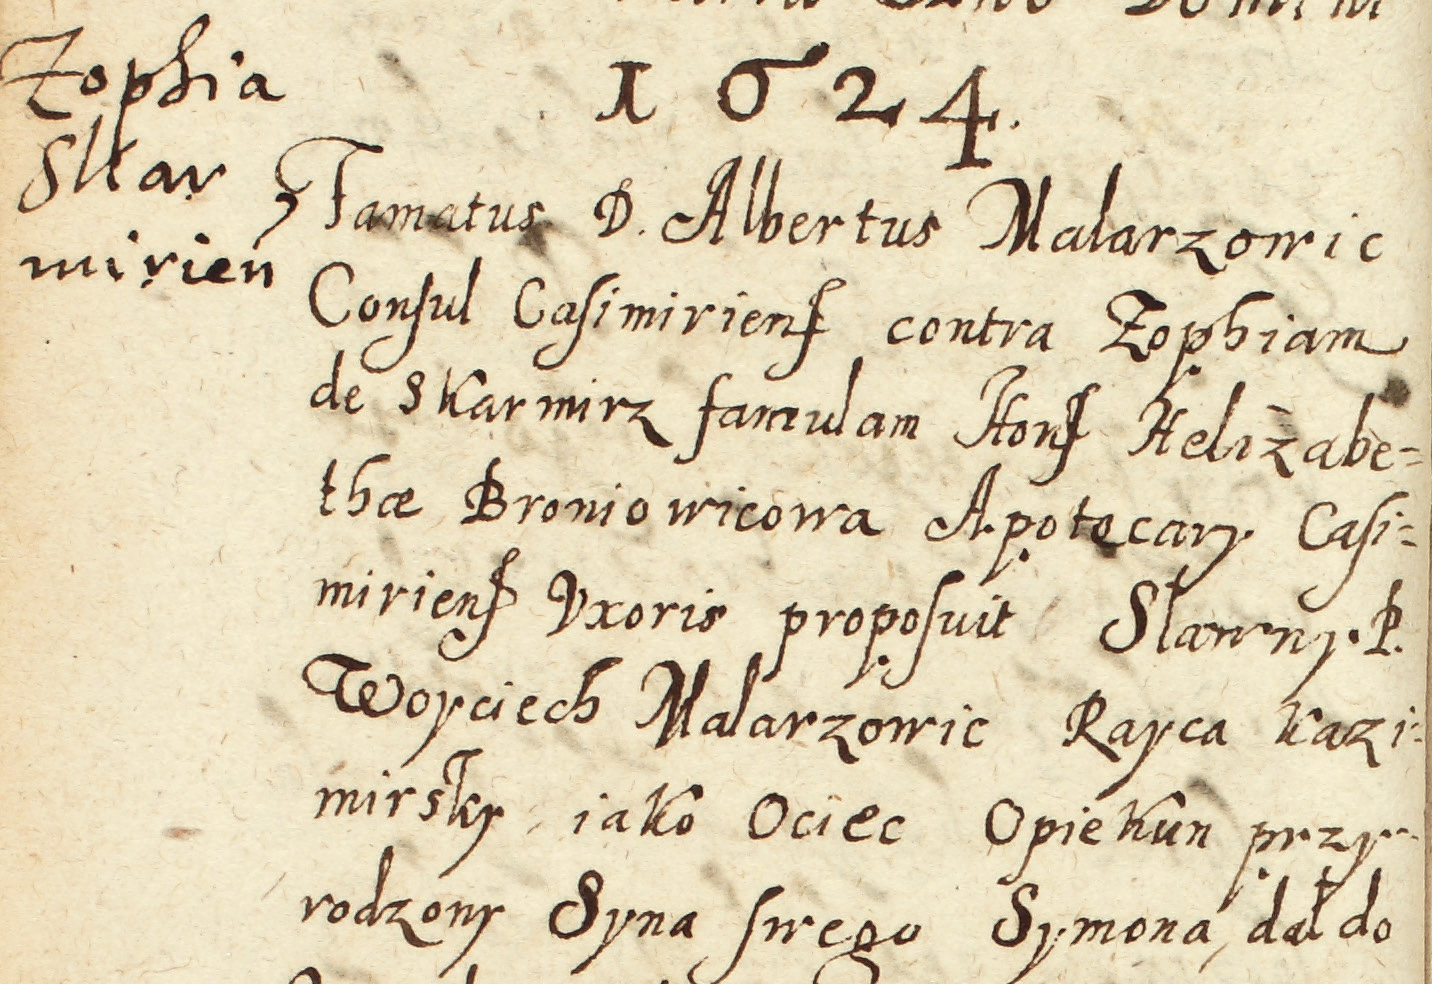 Domini
1624.
Zophia
Skar
mirien
Famatus D. Albertus Malarzowic
Consul Casimiriens contra Zophiam
de Skarmirz famulam Hons Helizabe=
thæ Broniowicowa Apotecary Casi=
miriens Vxoris proposuit Slawny P.
Woyciech Malarzowic Rayca Kazi=
mirsky iako Ociec Opiekun przy=
rodzony Syna swego Symona, dał do